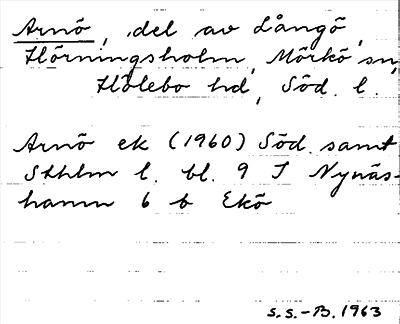 Arnö, del av Långö,
Hörningsholm, Mörkö sn,
Hölebo hd, Söd. l.
Arnö ek (1960) Söd. samt
Sthlm l. bl. 9 I Nynäs-
hamn 6 b Ekö
S.S.-B. 1963